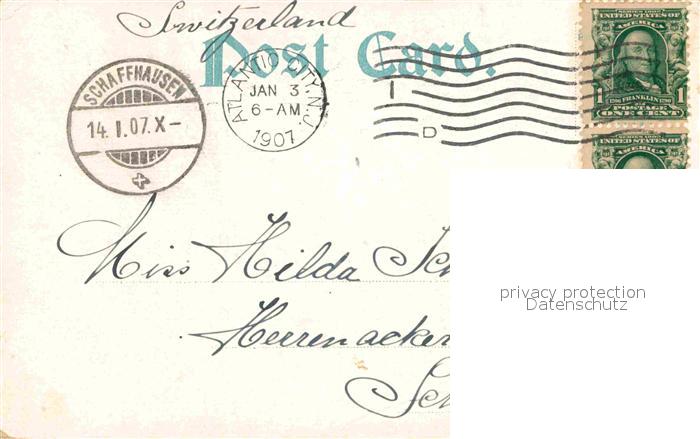 Switzerland
Post Card.
SCHAFFHAUSEN
14. I. 07. X-
ATLANTIC CITY, N.J.
JAN 3
6-AM
1907
I
D
SERIES 1902
UNITED STATES OF
AMERICA
1 1
1706 FRANKLIN 1790
POSTAGE
ONE CENT
SERIES 1902
UNITED STATES OF
AMERICA
Miss Hilda Sch
Herrenacker
Sch
privacy protection
Datenschutz